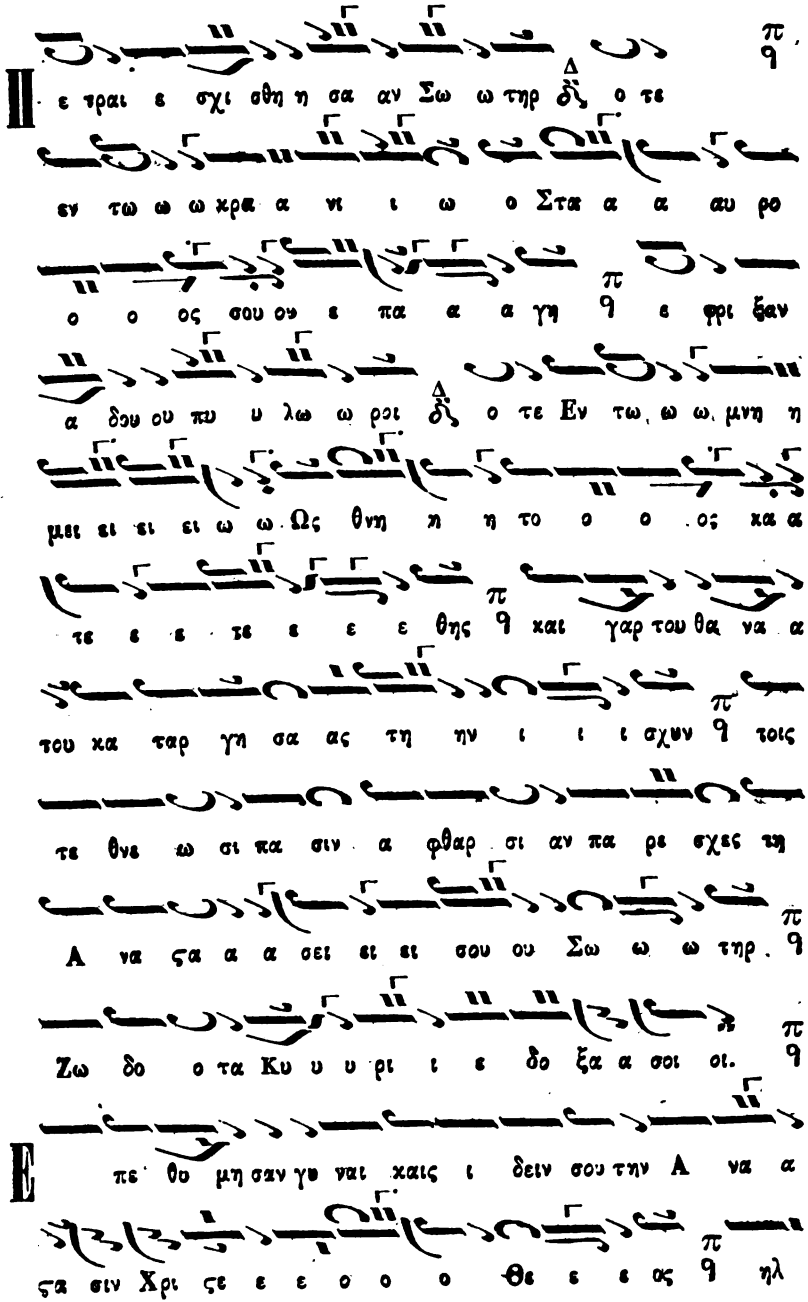 Π ε τραι ε σχι σθη η σα αν Σω ω τηρ Δ ο τε
εν τω ω ω κρα α νι ι ω ο Στα α α αυ ρο
ο ο ος σου ου ε πα α α γη π q ε φρι ξαν
α δου ου πυ υ λω ω ροι Δ ο τε Εν τω ω ω μνη η
μει ει ει ει ω ω Ως θνη η η το ο ο ος κα α
τε ε ε τε ε ε ε θης π q και γαρ του θα να α
του κα ταρ γη σα ας τη ην ι ι ι σχυν π q τοις
τε θνε ω σι πα σιν α φθαρ σι αν πα ρε σχες τη
Α να ϛα α α σει ει ει σου ου Σω ω ω τηρ. π q
Ζω δο ο τα Κυ υ υ ρι ι ε δο ξα α σοι οι. π q
Ε πε θυ μη σαν γυ ναι καις ι δειν σου την Α να α
ϛα σιν Χρι ϛε ε ε ο ο ο Θε ε ε ος π q ηλ